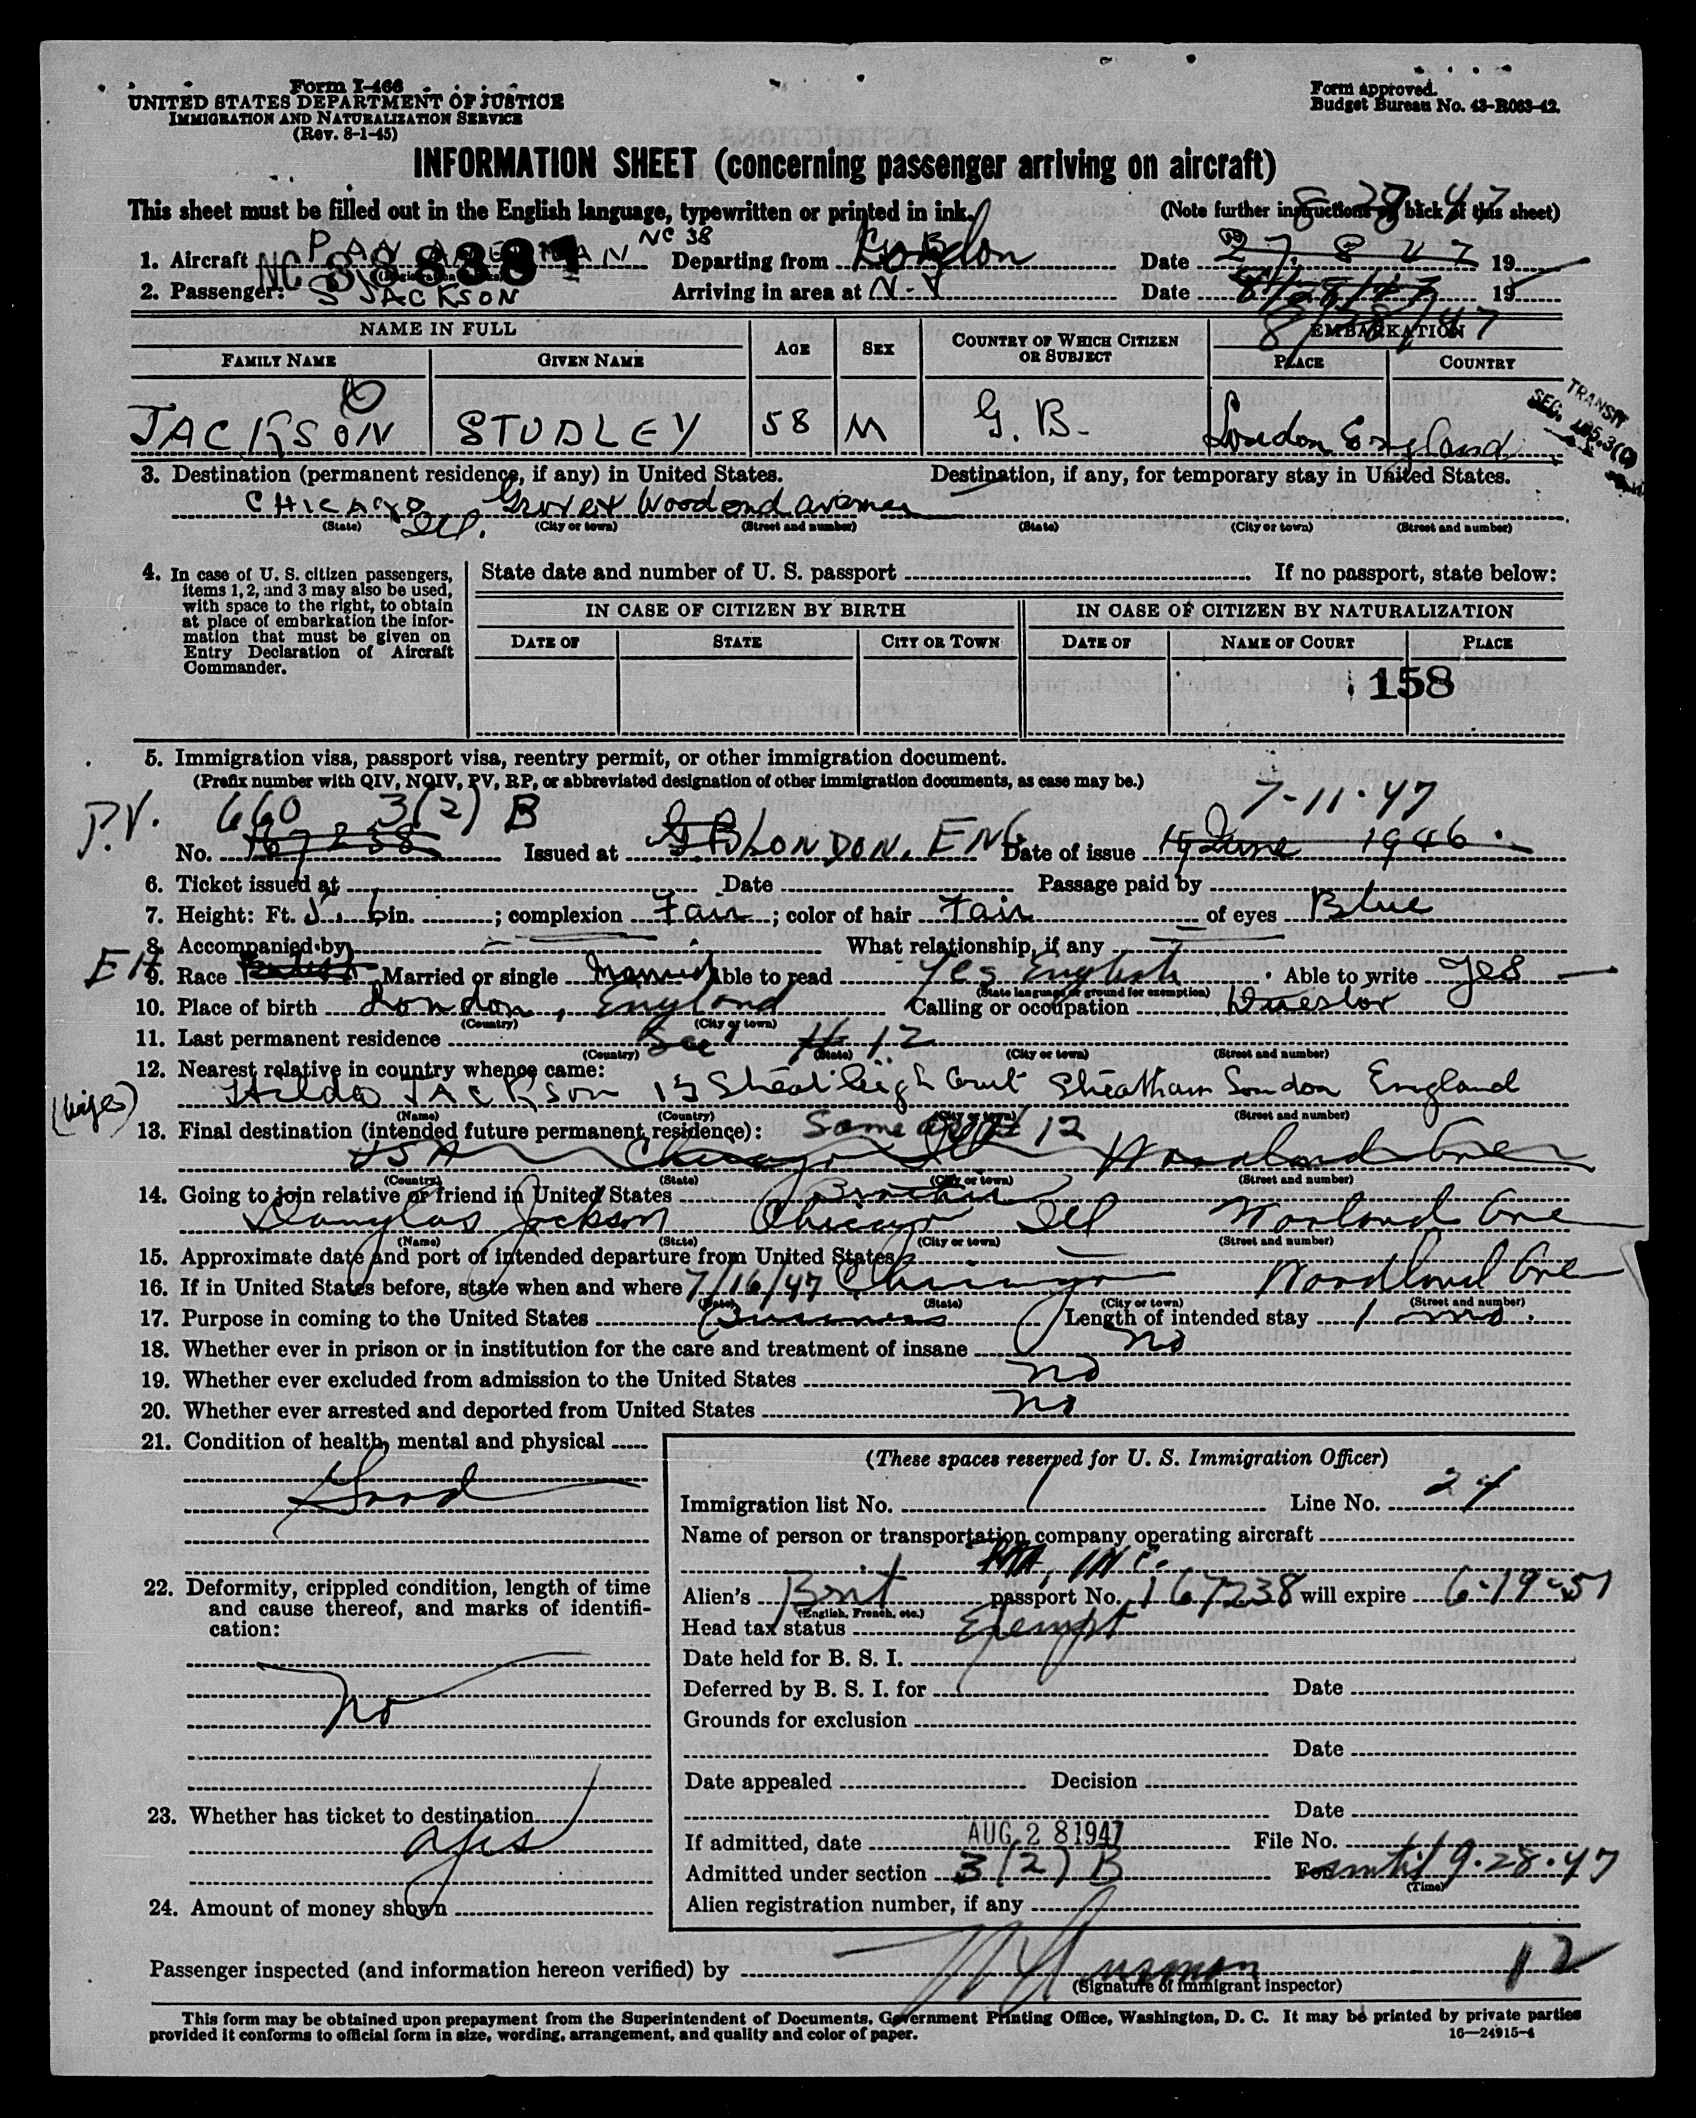 Form I-466
UNITED STATES DEPARTMENT OF JUSTICE
IMMIGRATION AND NATURALIZATION SERVICE
(Rev. 8-1-45)
Form approved.
Budget Bureau No. 43-R063-42.
INFORMATION SHEET (concerning passenger arriving on aircraft)
This sheet must be filled out in the English language, typewritten or printed in ink.
(Note further instructions on back of this sheet)
8-28-47
1. Aircraft PAN AMERICAN NC 38 NC 88881 Departing from London Date 27. 8 47 19
2. Passenger: S JACKSON Arriving in area at N-Y Date 8/28/47 19
8/28/47
NAME IN FULL
FAMILY NAME GIVEN NAME AGE SEX COUNTRY OF WHICH CITIZEN OR SUBJECT EMBARKATION PLACE COUNTRY
JACKSON STUDLEY 58 M G. B. London England
TRANSIT
SEC.
3. Destination (permanent residence, if any) in United States. Destination, if any, for temporary stay in United States.
CHICAGO Ill.
(State) (City or town) (Street and number) (State) (City or town) (Street and number)
4. In case of U. S. citizen passengers, items 1, 2, and 3 may also be used, with space to the right, to obtain at place of embarkation the information that must be given on Entry Declaration of Aircraft Commander.
State date and number of U. S. passport If no passport, state below:
IN CASE OF CITIZEN BY BIRTH IN CASE OF CITIZEN BY NATURALIZATION
DATE OF STATE CITY OR TOWN DATE OF NAME OF COURT PLACE
158
5. Immigration visa, passport visa, reentry permit, or other immigration document.
(Prefix number with QIV, NQIV, PV, RP, or abbreviated designation of other immigration documents, as case may be.)
P.V. 660 3(2) B 7-11-47
No. 167238 Issued at G.B. LONDON, ENG. Date of issue 19 June 1946.
6. Ticket issued at Date Passage paid by
7. Height: Ft. 5. 6 in. ; complexion Fair ; color of hair Fair of eyes Blue
8. Accompanied by What relationship, if any
EH
9. Race British Married or single Married Able to read Yes English Able to write Yes
(State language or ground for exemption)
10. Place of birth London, England Calling or occupation
(Country) (City or town)
11. Last permanent residence See # 12
(Country) (State) (City or town) (Street and number)
12. Nearest relative in country whence came:
(wife) Hilda JACKSON 15 Court London England
(Name) (Country) (City or town) (Street and number)
13. Final destination (intended future permanent residence): Same as # 12
USA Chicago Ill Woodland Ave
(Country) (State) (City or town) (Street and number)
14. Going to join relative or friend in United States Brother
Douglas Jackson Chicago Ill Woodland Ave
(Name) (State) (City or town) (Street and number)
15. Approximate date and port of intended departure from United States
16. If in United States before, state when and where 7/16/47 Chicago Woodland Ave
(Date) (State) (City or town) (Street and number)
17. Purpose in coming to the United States Business Length of intended stay 1 mo.
18. Whether ever in prison or in institution for the care and treatment of insane no
19. Whether ever excluded from admission to the United States no
20. Whether ever arrested and deported from United States no
21. Condition of health, mental and physical
Good
22. Deformity, crippled condition, length of time and cause thereof, and marks of identification:
no
23. Whether has ticket to destination
yes
24. Amount of money shown
(These spaces reserved for U. S. Immigration Officer)
Immigration list No. 1 Line No. 24
Name of person or transportation company operating aircraft
PAA, INC.
Alien's Brit passport No. 167238 will expire 6-19-51
(English, French, etc.)
Head tax status Exempt
Date held for B. S. I.
Deferred by B. S. I. for Date
Grounds for exclusion
Date
Date appealed Decision
Date
If admitted, date AUG 28 1947 File No.
Admitted under section 3(2) B For until 9-28-47
(Time)
Alien registration number, if any
Passenger inspected (and information hereon verified) by 12
(Signature of immigrant inspector)
This form may be obtained upon prepayment from the Superintendent of Documents, Government Printing Office, Washington, D. C. It may be printed by private parties
provided it conforms to official form in size, wording, arrangement, and quality and color of paper. 16—24915-4